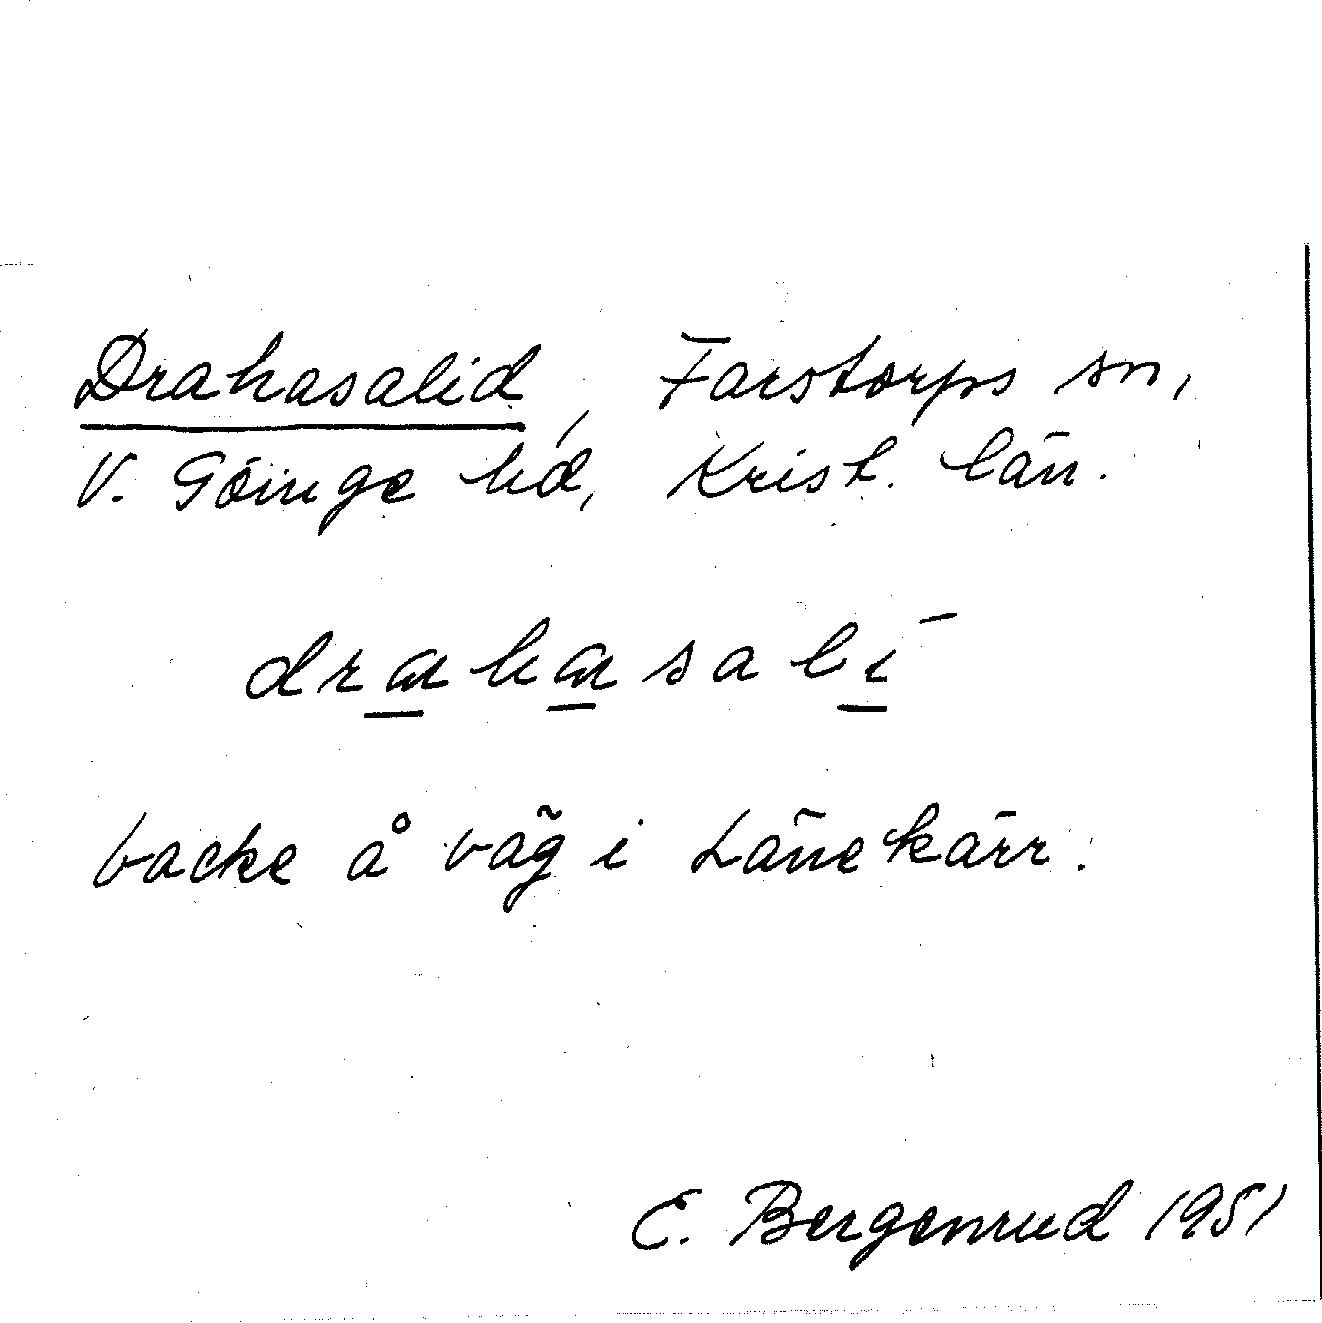 Drahasalid, Farstorps sn,
V. Göinge hd, Krist. län.
drahasalí
backe å väg i Länekärr.
E. Bergenrud 1951